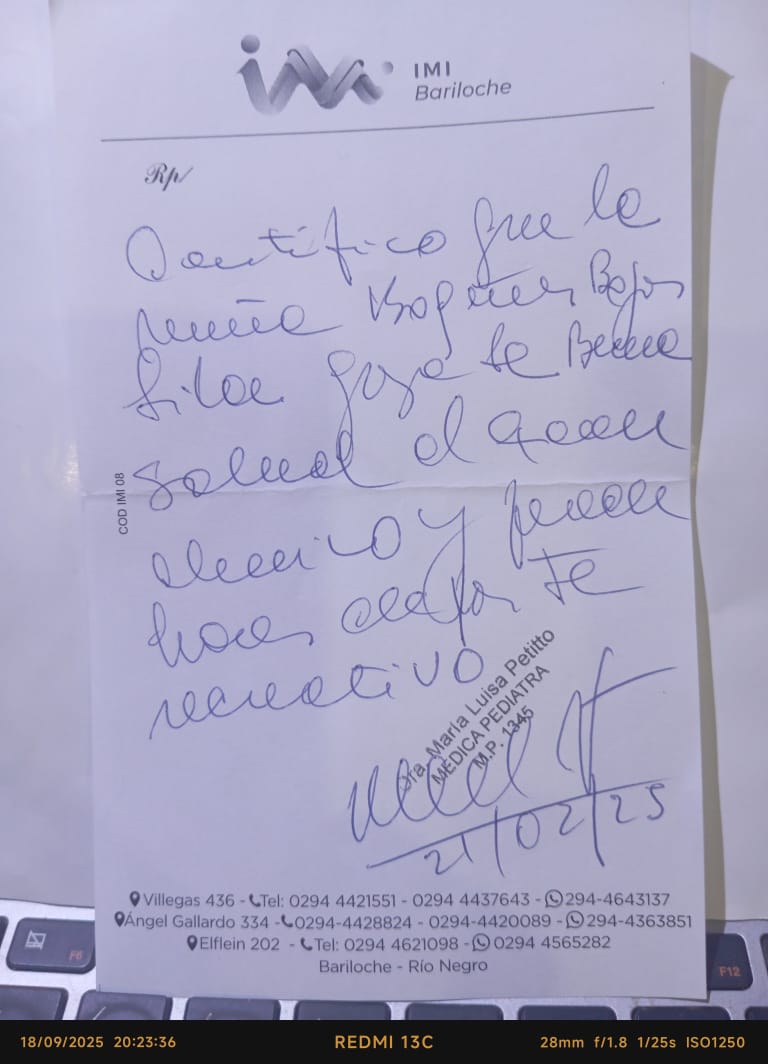 IMI
Bariloche
Rp/
Certifico que la
niña Bajos
goza de Buena
salud al
clinico y puede
hacer deporte
recreativo
Dra. María Luisa Petitto
MEDICA PEDIATRA
M.P. 1345
21/02/25
COD IMI 08
Villegas 436 - Tel: 0294 4421551 - 0294 4437643 - 294-4643137
Ángel Gallardo 334 - 0294-4428824 - 0294-4420089 - 294-4363851
Elflein 202 - Tel: 0294 4621098 - 0294 4565282
Bariloche - Río Negro
F6
F12
18/09/2025 20:23:36 REDMI 13C 28mm f/1.8 1/25s ISO1250